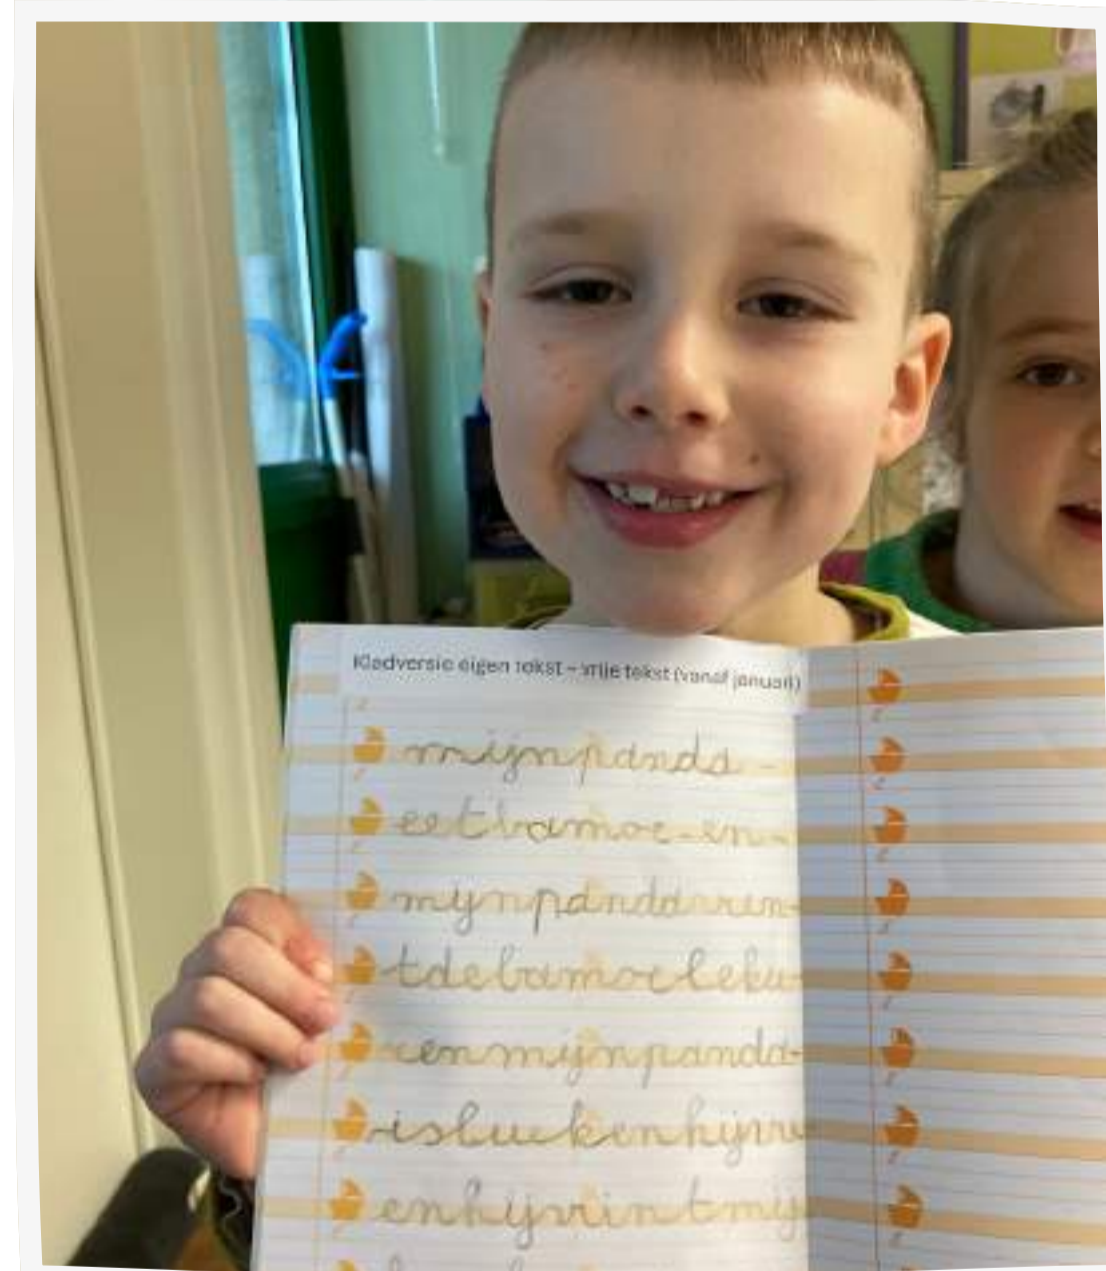 Kladversie eigen tekst – vrije tekst (vanaf januari)
mijn panda
eet bamoe en
mijn panda vin
t de bamoe leku
en mijn panda
is luuk en hij
en hij vint mij